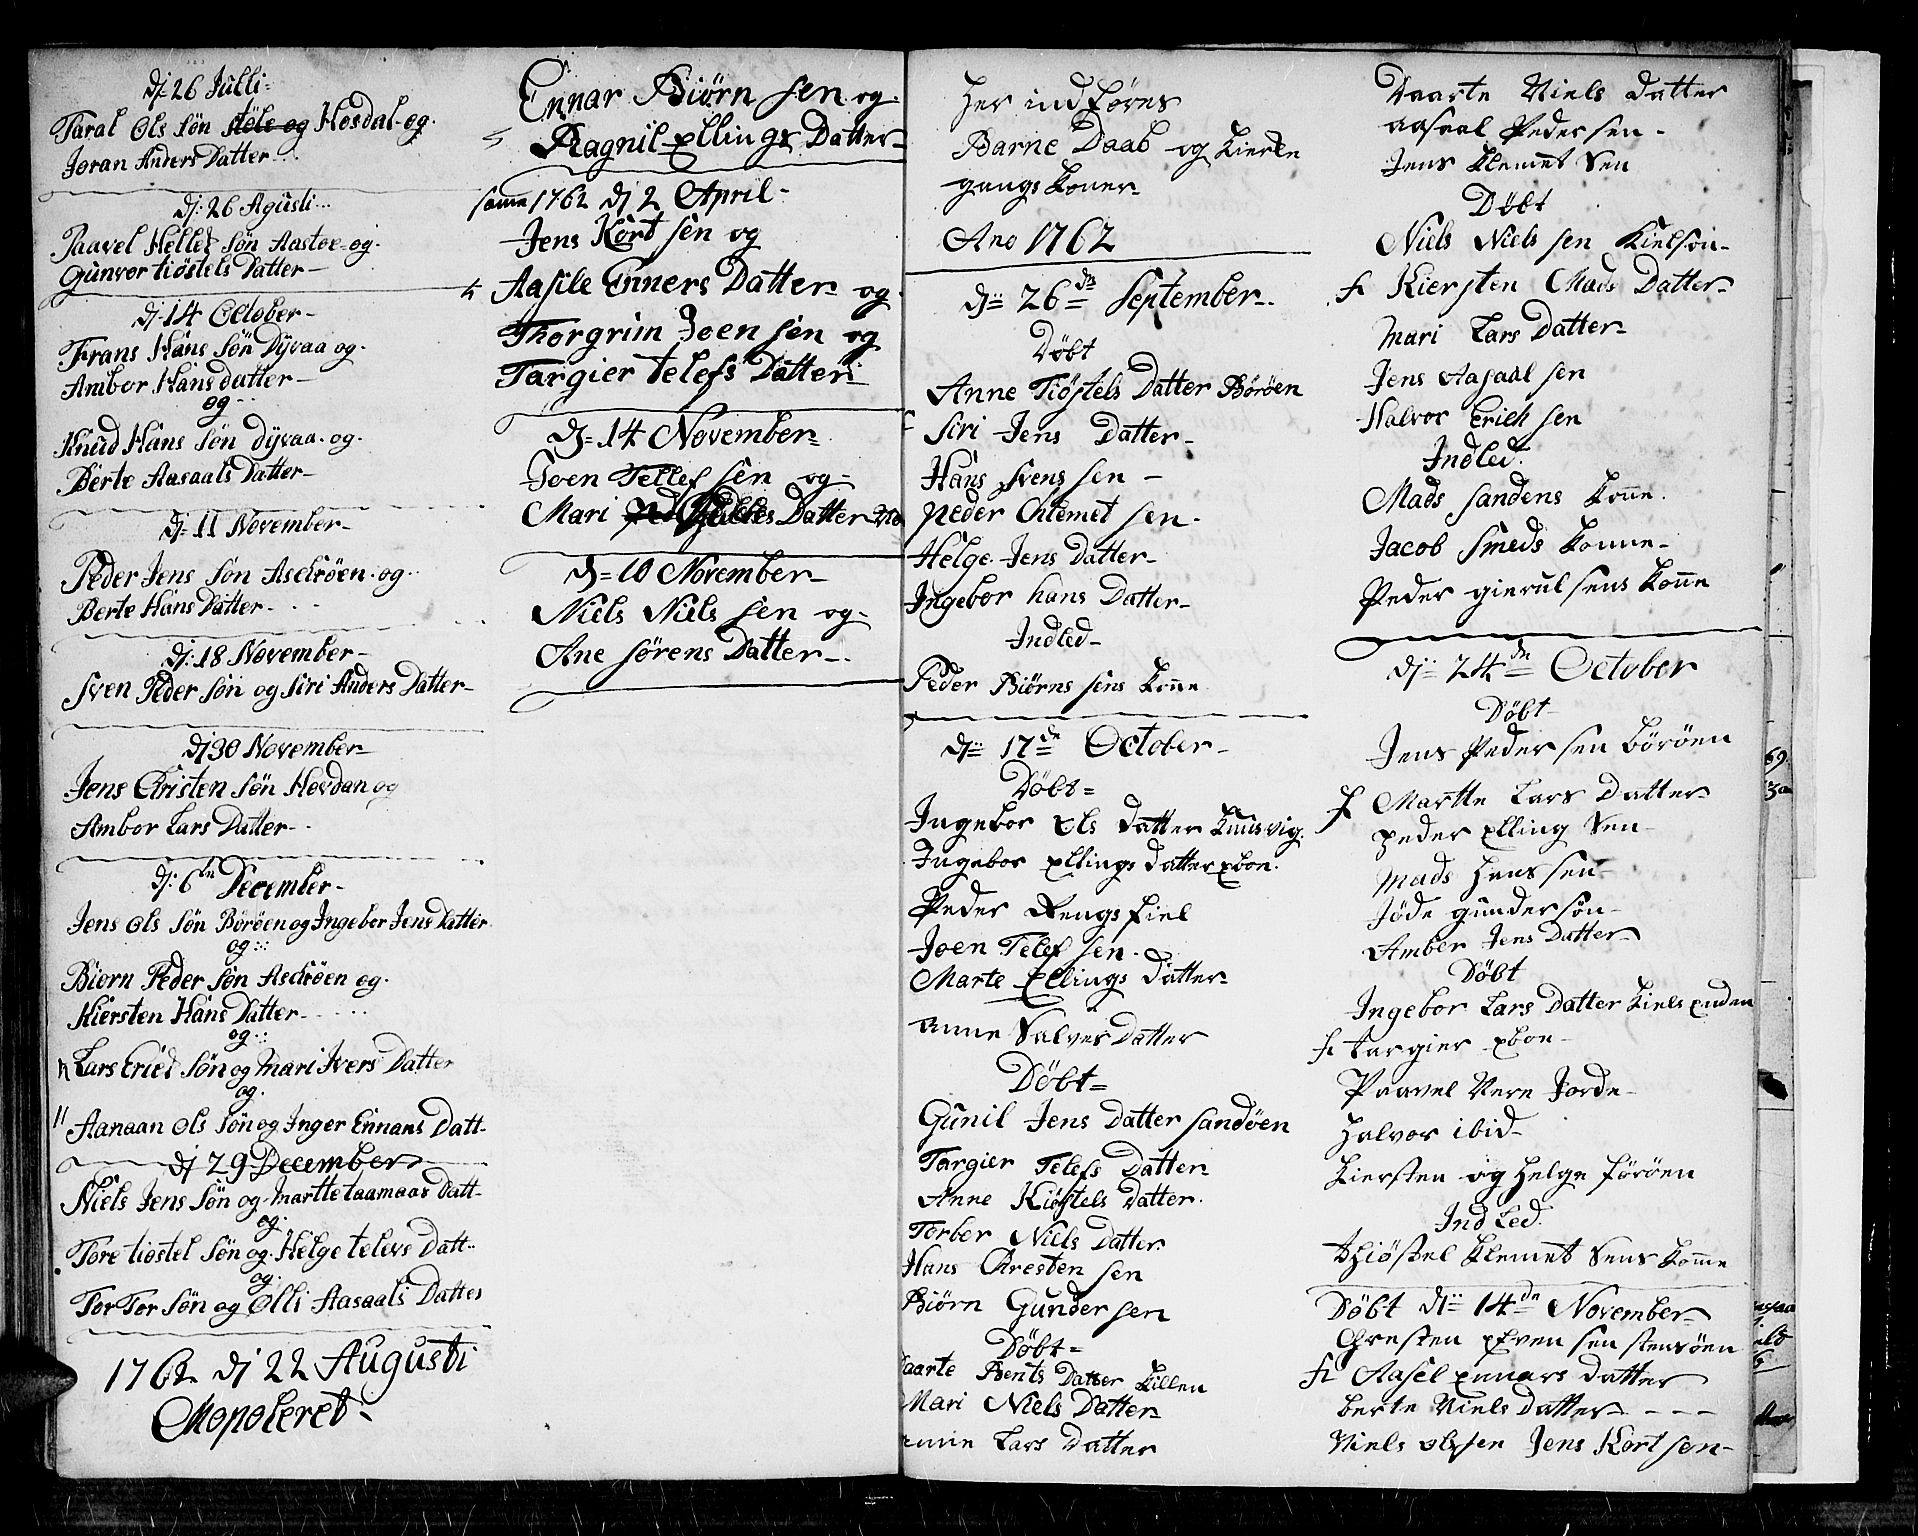 dj: 26 Julli-
Taral Ols Søn Støle og Hosdal og.
Joran Anders Datter...
dj: 26 Agusti...
Paavel Hellef Søn Aastøe og.
Gunvor tiøstels Datter-
dj: 14 October-
Frans Hans Søn Dyvaa og.
Ambor Hans datter-
og-
Knud Hans Søn dyvaa. og.
Berte Aasaals Datter-
dj: 11 November-
Peder Jens Søn Askrøen. og..
Berte Hans Datter- . .
dj: 18 November-
Sven Peder Søn og Siri Anders Datter-
dj 30 November-
Jens Christen Søn Hovdan og
Ambor Lars Datter- .
dj: 6te December-
Jens Ols Søn Børøen og Ingebor Jens Datter
og...
Biørn Peder Søn Askrøen og.
Kiersten Hans Datter- . . . .
og...
Lars Erick Søn og mari Ivers Datter
og.
Aanaan Ols Søn og Inger Ennans Datt-
dj 29 December
Niels Jens Søn og Martte taamaas Datt-
og.
Tore tiøstel Søn og Helge televs Datt..
og.
Tor Tor Søn og Olli Aasaals Datter
1762 dj 22 Augusti
Copoleret-
Ennar Biørn sen og-
Ragnil Ellings Datter-
same 1762 dj 2 April-
Jens Kort sen og
Aasile Enners Datter og.
Thorgrim Joen sen og
Targier telefs Datter
dj= 14 November-
Joen Tellef sen og-
Mari Datter
dj= 10 November-
Niels Niels sen og-
Ane Sørens Datter-.
Her indføres
Barne Daab og Kierke
gangs koner-
Ano 1762
dj= 26de September-.
Døbt
Anne Tiøstels Datter Børøen
Siri Jens Datter-
Hans Svens sen -
Peder Clemet sen-
Helge Jens Datter-
Ingebor hans Datter-
Indled-
Peder Biørns sens Kone
dj= 17de October-
Døbt=
Ingebor Ols datter Knusvig.
Ingebor Ellings datter Ebon.
Peder Rengs fiel
Joen Telef sen.
Marte Ellings datter-
anne Salves Datter
Døbt=
Gunil Jens Datter sandøen
Targier Telefs Datter-
Anne Kiøstels Datter.
Torber Niels Datter
Hans Cresten sen
Biørn Gunder sen
Døbt=
aarte Bents Datter Killen
Mari Niels Datter-
anne Lars Datter
Maarte Niels datter
aasaal Peder sen-
Jens Klemet Sen
Døbt
Niels Niels sen Kielson-
f Kiersten Mads Datter-
Mari Lars Datter-
Jens Aasaal sen
Halvor Erich sen
Indled.
Mads sandens kone.
Jacob Smeds Konne-
Peder gierul sens Kone
dj= 24de October
Døbt
Jens Peder sen børøen
f Martte Lars Datter
Peder Elling Sen
Mads Hans sen-
Jøde gunder søn-
Amber Jens Datter-
Døbt
Ingebor Lars Datter Kiels enden
f Targier Ebon-
Paavel Nere Jorde-
Halvor ibid-
Kiersten og Helge førøen
Indled.
thiøstel Klemet Sens Konne
Døbt dj= 14de November-
Chresten Even sen stensøen
f Aasel Ennars Datter
berte Niels Datter- - - -
Niels olssen Jens Kort sen-